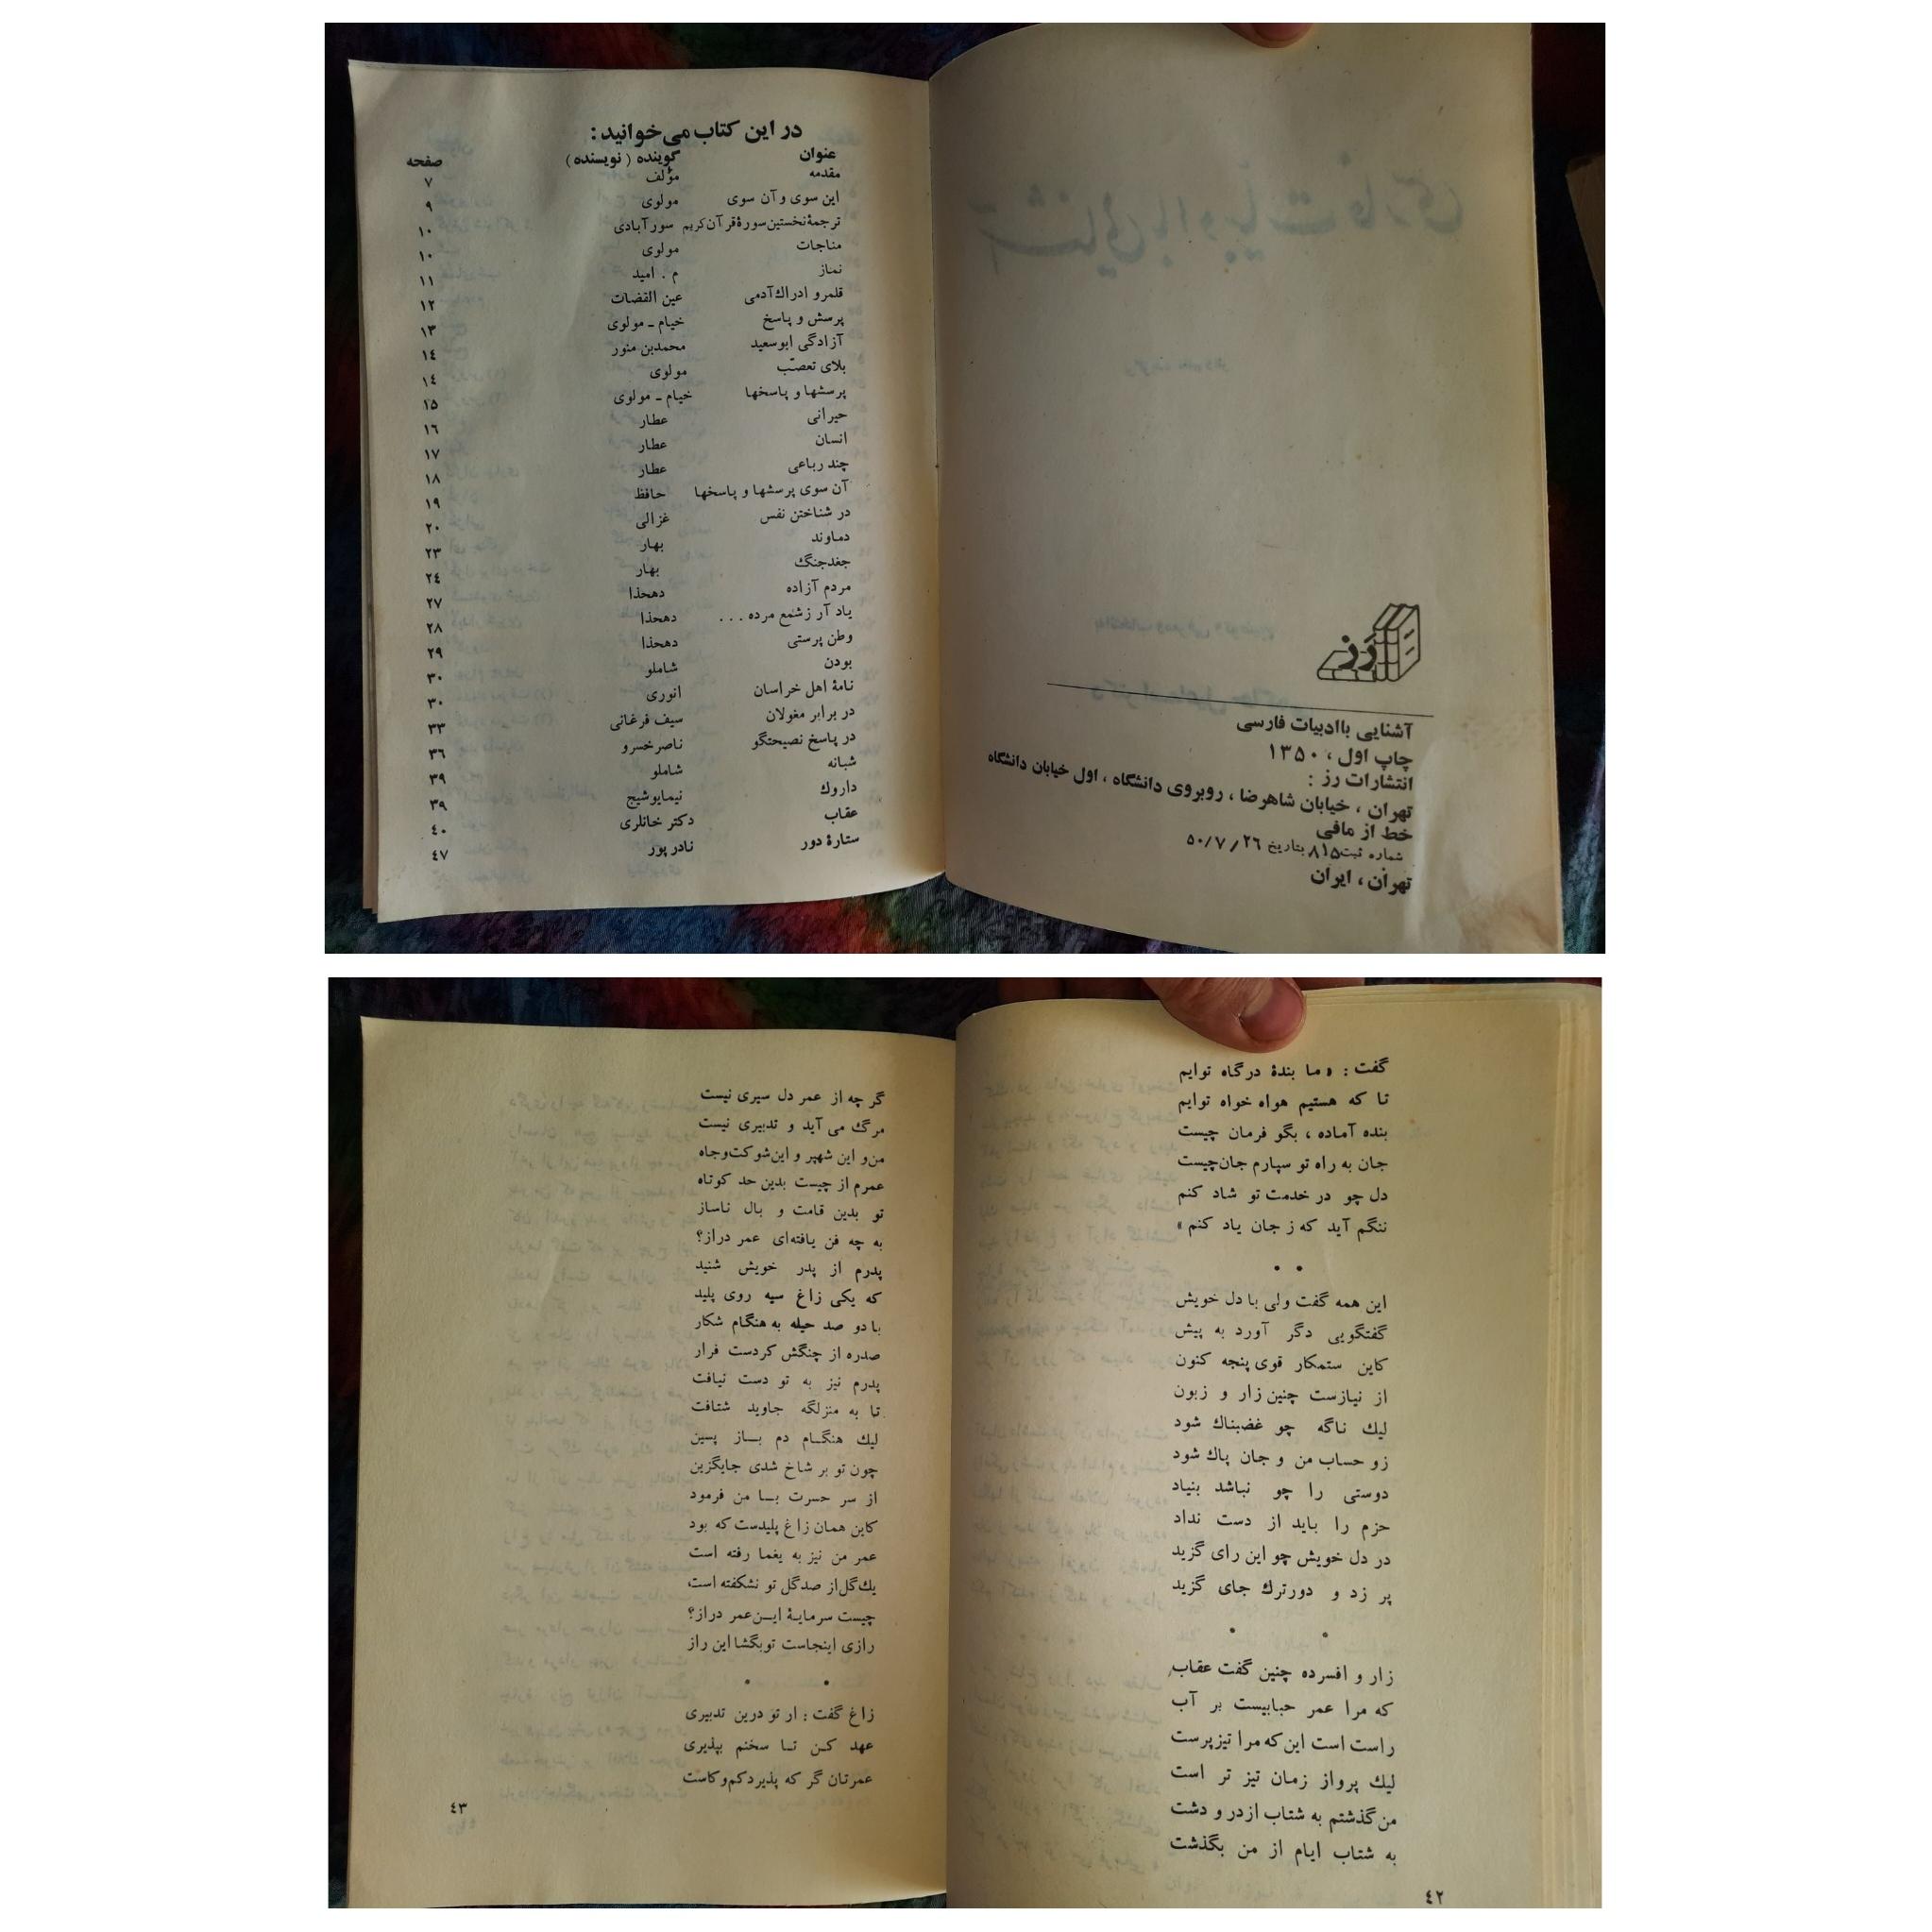 رز
آشنایی با ادبیات فارسی
چاپ اول ، ۱۳۵۰
انتشارات رز :
تهران ، خیابان شاهرضا ، روبروی دانشگاه ، اول خیابان دانشگاه
خط از مافی
شماره ثبت ۸۱۵ بتاریخ ۵۰/۷/۲۶
تهران ، ایران
در این کتاب می‌خوانید :
عنوان گوینده ( نویسنده ) صفحه
مقدمه مؤلف ۷
این سوی و آن سوی مولوی ۹
ترجمهٔ نخستین سورهٔ قرآن کریم سورآبادی ۱۰
مناجات مولوی ۱۰
نماز م . امید ۱۱
قلمرو ادراك آدمی عین القضات ۱۲
پرسش و پاسخ خیام ـ مولوی ۱۳
آزادگی ابوسعید محمدبن منور ۱۴
بلای تعصّب مولوی ۱۴
پرسشها و پاسخها خیام ـ مولوی ۱۵
حیرانی عطار ۱۶
انسان عطار ۱۷
چند رباعی عطار ۱۸
آن سوی پرسشها و پاسخها حافظ ۱۹
در شناختن نفس غزالی ۲۰
دماوند بهار ۲۳
جغدجنگ بهار ۲۴
مردم آزاده دهخدا ۲۷
یاد آر ز شمع مرده . . . دهخدا ۲۸
وطن پرستی دهخدا ۲۹
بودن شاملو ۳۰
نامهٔ اهل خراسان انوری ۳۰
در برابر مغولان سیف فرغانی ۳۳
در پاسخ نصیحتگو ناصرخسرو ۳۶
شبانه شاملو ۳۹
داروك نیمایوشیج ۳۹
عقاب دکتر خانلری ۴۰
ستارهٔ دور نادر پور ۴۷
گفت : «ما بندهٔ درگاه توایم
تا که هستیم هواه خواه توایم
بنده آماده ، بگو فرمان چیست
جان به راه تو سپارم جان چیست
دل چو در خدمت تو شاد کنم
ننگم آید که ز جان یاد کنم»
• •
این همه گفت ولی با دل خویش
گفتگویی دگر آورد به پیش
کاین ستمکار قوی پنجه کنون
از نیازست چنین زار و زبون
لیك ناگه چو غضبناك شود
زو حساب من و جان پاك شود
دوستی را چو نباشد بنیاد
حزم را باید از دست نداد
در دل خویش چو این رای گزید
پر زد و دورترك جای گزید
• •
زار و افسرده چنین گفت عقاب
که مرا عمر حبابیست بر آب
راست است این که مرا تیز پرست
لیك پرواز زمان تیز تر است
من گذشتم به شتاب از در و دشت
به شتاب ایام از من بگذشت
۴۲
گر چه از عمر دل سیری نیست
مرگ می آید و تدبیری نیست
من و این شهپر و این شوکت و جاه
عمرم از چیست بدین حد کوتاه
تو بدین قامت و بال ناساز
به چه فن یافته‌ای عمر دراز؟
پدرم از پدر خویش شنید
که یکی زاغ سیه روی پلید
با دو صد حیله به هنگام شکار
صدره از چنگش کردست فرار
پدرم نیز به تو دست نیافت
تا به منزلگه جاوید شتافت
لیك هنگام دم باز پسین
چون تو بر شاخ شدی جایگزین
از سر حسرت با من فرمود
کاین همان زاغ پلیدست که بود
عمر من نیز به یغما رفته است
یك گل از صد گل تو نشکفته است
چیست سرمایهٔ این عمر دراز؟
رازی اینجاست تو بگشا این راز
• •
زاغ گفت : ار تو درین تدبیری
عهد کن تا سخنم بپذیری
عمرتان گر که پذیرد کم و کاست
۴۳